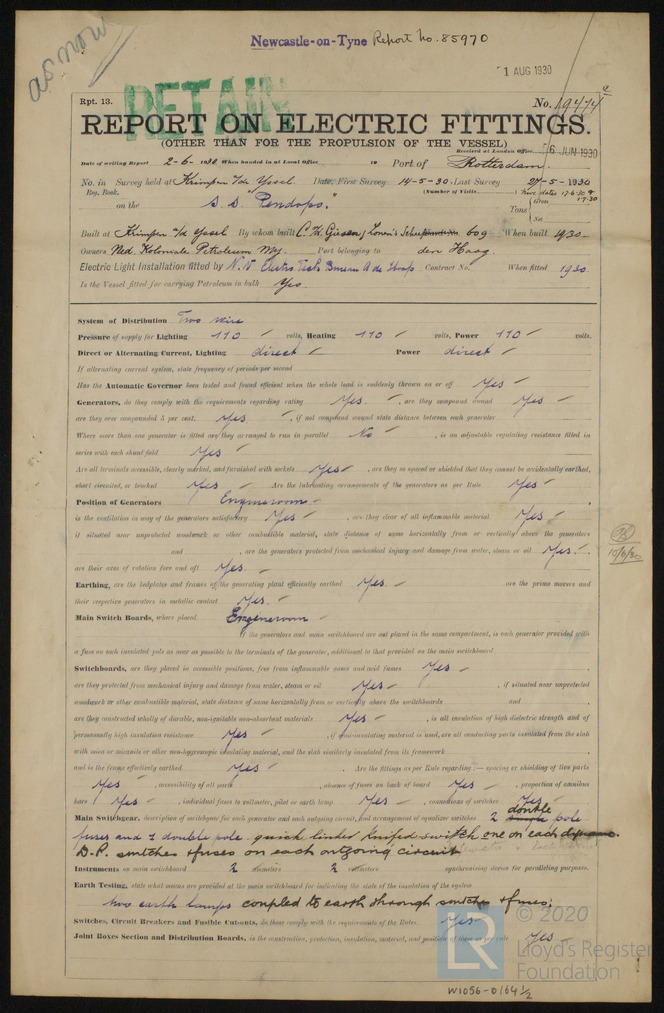 as now
Newcastle-on-Tyne Report No. 85970
1 AUG 1930
RETAIN
Rpt. 13.
No. 19474
REPORT ON ELECTRIC FITTINGS.
(OTHER THAN FOR THE PROPULSION OF THE VESSEL)
Received at London Office 6 JUN 1930
Date of writing Report 2-6-1930 When handed in at Local Office 19 Port of Rotterdam
No. in Survey held at Krimpen a/d Yssel. Date, First Survey 14-5-30 Last Survey 27-5-1930
Reg. Book. (Number of Visits
on the S.S. "Pendopo." Tons { Gross
Net
Built at Krimpen a/d Yssel By whom built C. v. Giessen & Zonen's Yard No. 609 When built 1930-
Owners Ned. Koloniale Petroleum My. Port belonging to den Haag.
Electric Light Installation fitted by N.V. Electro Techn Bureau Contract No. When fitted 1930
Is the Vessel fitted for carrying Petroleum in bulk Yes.
System of Distribution Two wire
Pressure of supply for Lighting 110 volts, Heating 110 volts, Power 110 volts.
Direct or Alternating Current, Lighting direct Power direct
If alternating current system, state frequency of periods per second
Has the Automatic Governor been tested and found efficient when the whole load is suddenly thrown on or off Yes
Generators, do they comply with the requirements regarding rating Yes. , are they compound wound Yes
are they over compounded 5 per cent. Yes , if not compound wound state distance between each generator
Where more than one generator is fitted are they arranged to run in parallel No , is an adjustable regulating resistance fitted in
series with each shunt field Yes
Are all terminals accessible, clearly marked, and furnished with sockets Yes , are they so spaced or shielded that they cannot be accidentally earthed,
short circuited, or touched Yes Are the lubricating arrangements of the generators as per Rule Yes
Position of Generators Engineroom
is the ventilation in way of the generators satisfactory Yes , are they clear of all inflammable material Yes
if situated near unprotected woodwork or other combustible material, state distance of same horizontally from or vertically above the generators
and , are the generators protected from mechanical injury and damage from water, steam or oil Yes.
are their axes of rotation fore and aft Yes.
10/6/30
Earthing, are the bedplates and frames of the generating plant efficiently earthed Yes. are the prime movers and
their respective generators in metallic contact Yes.
Main Switch Boards, where placed Engineroom
if the generators and main switchboard are not placed in the same compartment, is each generator provided with
a fuse on each insulated pole as near as possible to the terminals of the generator, additional to that provided on the main switchboard
Switchboards, are they placed in accessible positions, free from inflammable gases and acid fumes Yes ,
are they protected from mechanical injury and damage from water, steam or oil Yes , if situated near unprotected
woodwork or other combustible material, state distance of same horizontally from or vertically above the switchboards and ,
are they constructed wholly of durable, non-ignitable non-absorbent materials Yes , is all insulation of high dielectric strength and of
permanently high insulation resistance Yes , if semi-insulating material is used, are all conducting parts insulated from the slab
with mica or micanite or other non-hygroscopic insulating material, and the slab similarly insulated from its framework ,
and is the frame effectively earthed Yes . Are the fittings as per Rule regarding:— spacing or shielding of live parts
Yes , accessibility of all parts , absence of fuses on back of board Yes , proportion of omnibus
bars Yes , individual fuses to voltmeter, pilot or earth lamp Yes , connections of switches Yes
Main Switchgear, description of switchgear for each generator and each outgoing circuit, and arrangement of equalizer switches 2 double pole
fuses and 1 double pole quick linked knifed switch one on each dynamo.
D.P. switches & fuses on each outgoing circuit
Instruments on main switchboard 2 ammeters 2 voltmeters synchronising device for paralleling purposes.
Earth Testing, state what means are provided at the main switchboard for indicating the state of the insulation of the system
two earth lamps coupled to earth through switches & fuses.
Switches, Circuit Breakers and Fusible Cut-outs, do these comply with the requirements of the Rules Yes
Joint Boxes Section and Distribution Boards, is the construction, protection, insulation, material, and position of these as per rule Yes
© 2020
LR
Lloyd's Register
Foundation
W1056-0164 1/2